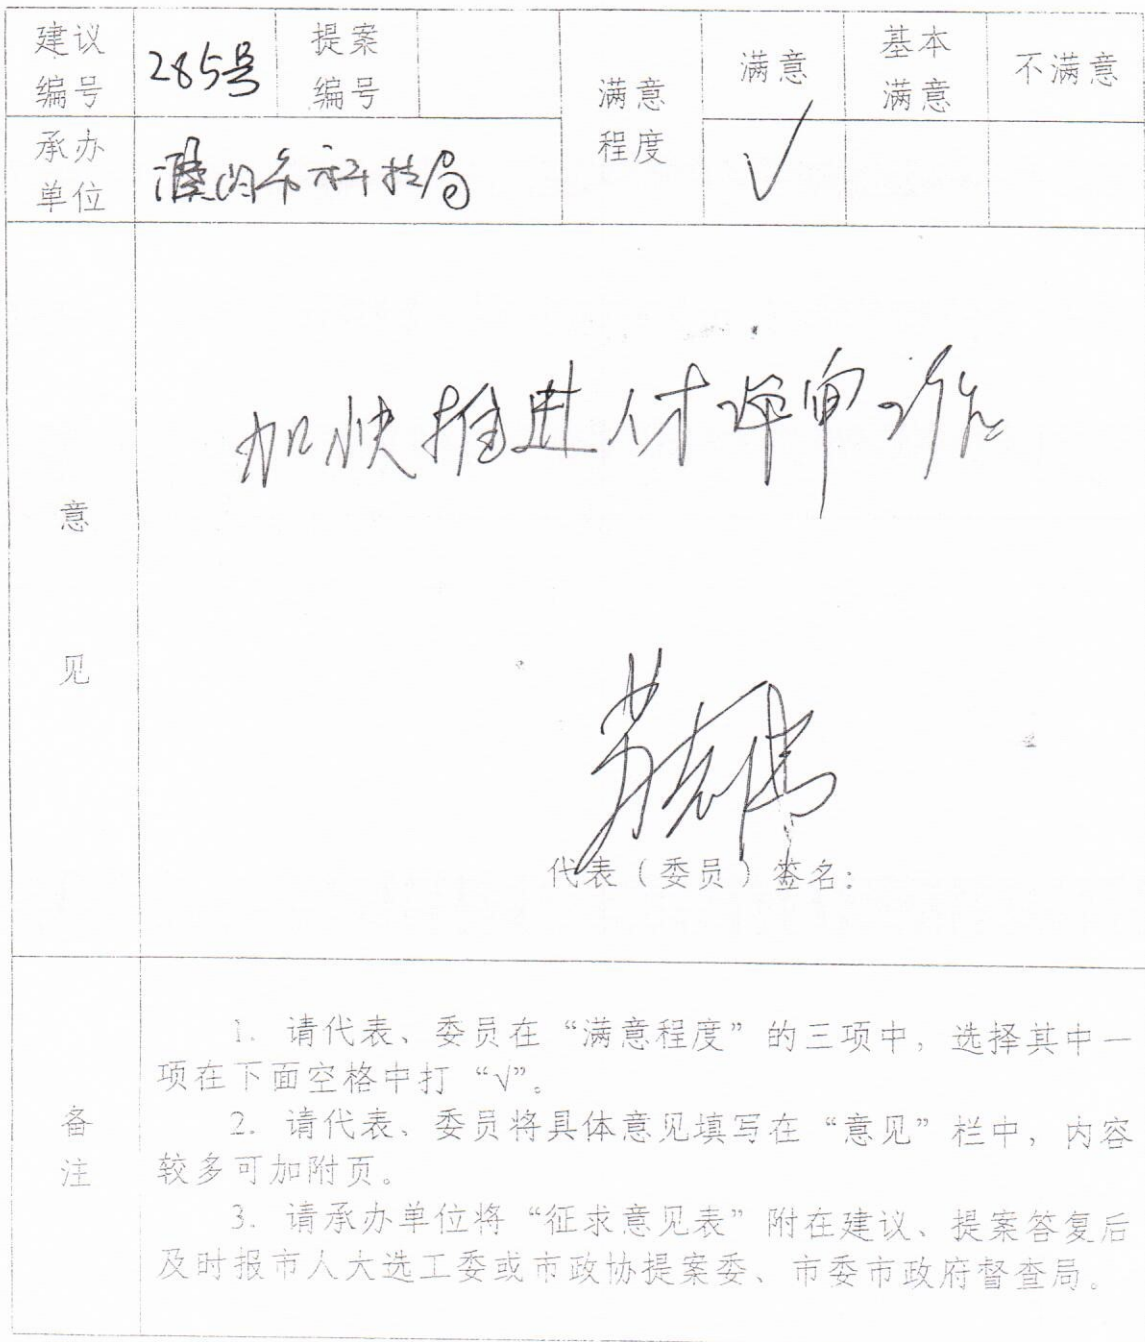 建议编号 285号 提案编号 满意程度 满意 基本满意 不满意
承办单位 市科技局 √
意见
加快推进人才评审工作
代表（委员）签名：
备注
1. 请代表、委员在“满意程度”的三项中，选择其中一
项在下面空格中打“√”。
2. 请代表、委员将具体意见填写在“意见”栏中，内容
较多可加附页。
3. 请承办单位将“征求意见表”附在建议、提案答复后
及时报市人大选工委或市政协提案委、市委市政府督查局。